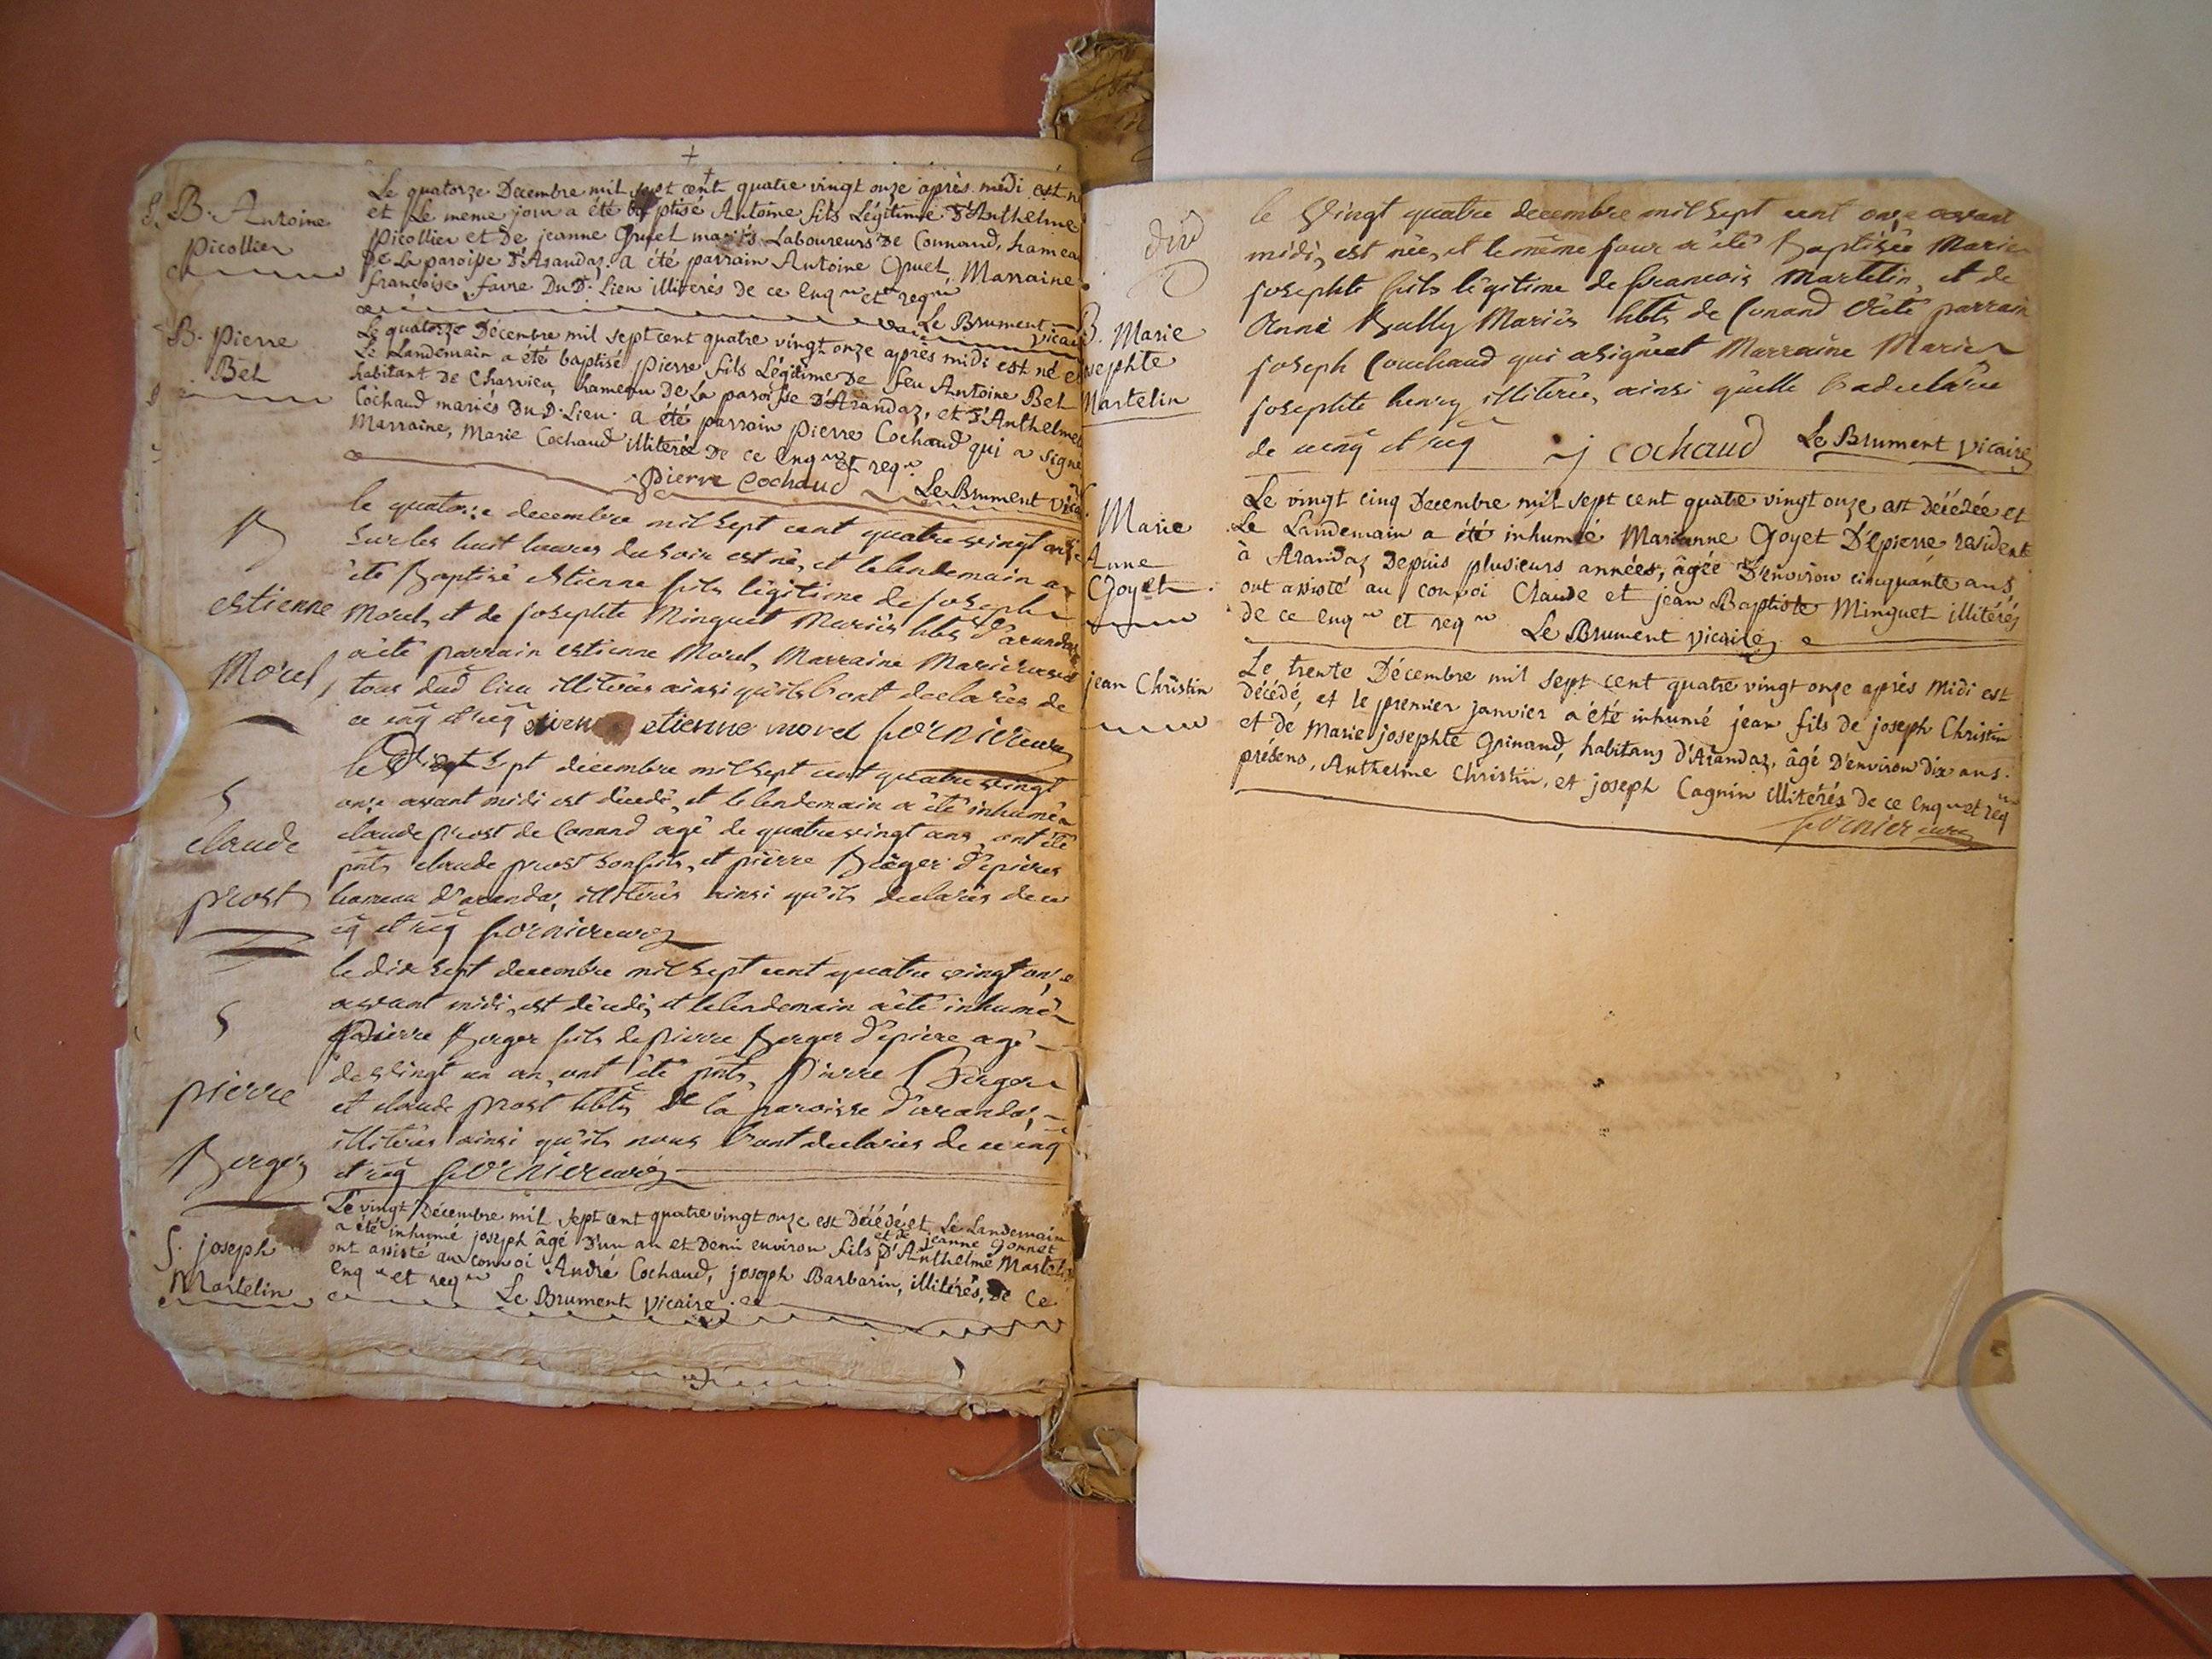 Le quatorze Decembre mil sept cent quatre vingt onze après midi est n
S. B. Antoine
et Le meme jour a été baptisé Antoine fils Légitime D'Anthelme
Picollier
Picollier et De jeanne Gruel mariés Laboureurs De Connand, hamea
De La paroisse D'Arandaz. a été parrain Antoine Gruel, Marraine
françoise favre Du D. Lieu illiterés de ce Enq.is et req.is
Le Brument vicai
B. Pierre
Bel
Le quatorze Décembre mil sept cent quatre vingt onze après midi est né e
Le Landemain a été baptisé Pierre fils Légitime De feu Antoine Bel
habitant De Charvieu, hameau De La paroisse D'Arandaz, et D'Anthelme
Cochaud mariés Du D. Lieu. a été parrain Pierre Cochaud qui a signé
Marraine, Marie Cochaud illiterée De ce Enq.se et req.se
Pierre Cochaud Le Brument vica
B
estienne
Morel
le quatorze decembre mil sept cent quatre vingt onze
sur les huit heures du soir est né, et le lendemain a
été Baptisé Estienne fils légitime de joseph
Morel, et de josephte Minguet Mariés hbts d'arandas
a été parrain estienne Morel, Marraine Marie
tous dud lieu illiterés ainsi qu'ils l'ont declarés de
ce enq et req etienne morel fornier curé
S
claude
prost
le Dix sept décembre mil sept cent quatre vingt
onze avant midi est décedé, et le lendemain a été inhumé
claude prost de Conand âgé de quatre vingt ans, ont été
pnts claude prost son fils, et pierre Berger d'epierre
hameau d'arandas, illiterés ainsi qu'ils declarés de ce
eq et req fornier curé
S
pierre
Berger
le dix sept decembre mil sept cent quatre vingt onze
avant midi, est décedé, et le lendemain a été inhumé
pierre Berger fils de pierre Berger d'epiere agé
de vingt un an, ont été pnts, Pierre Berger
et claude prost hbts de la paroisse d'arandas,
illiterés ainsi qu'ils nous l'ont declarés de ce enq
et req fornier curé
S. joseph
Martelin
Le vingt Décembre mil sept cent quatre vingt onze est Décédé et Le Landemain
a été inhumé joseph âgé D'un an et Demi environ fils D'Anthelme Martelin
et de jeanne Gonnet
ont assisté au convoi André Cochaud, joseph Barbarin, illitérés, De Ce
Enq.is et req.is Le Brument vicaire
B. Marie
josephte
Martelin
le Vingt quatre decembre mil sept cent onze avant
midi, est née, et le même jour a été Baptisée Marie
josephte fils légitime de francois Martelin, et de
Anne Bully Mariés hbts de Conand a été parrain
joseph Couchaud qui a signé et Marraine Marie
josephte henry illiterée, ainsi qu'elle l'a declarée
de ce enq et req j cochaud Le Brument vicaire
Marie
Anne
Goyet
Le vingt cinq Decembre mil sept cent quatre vingt onze est Décédée et
Le Landemain a été inhumée Marianne Goyet D'epierre residente
à Arandaz Depuis plusieurs années, âgée D'environ cinquante ans,
ont assisté au convoi Claude et jean Baptiste Minguet illitérés
de ce Enq.is et req.is Le Brument vicaire
jean Christin
Le trente Décembre mil sept cent quatre vingt onze après Midi est
décédé, et le premier janvier a été inhumé jean fils de joseph Christin
et de Marie josephte Grinand, habitans d'Arandaz, âgé D'environ dix ans.
présens, Anthelme Christin, et joseph Cagnin illitérés de ce Enq.is et req.is
fornier curé